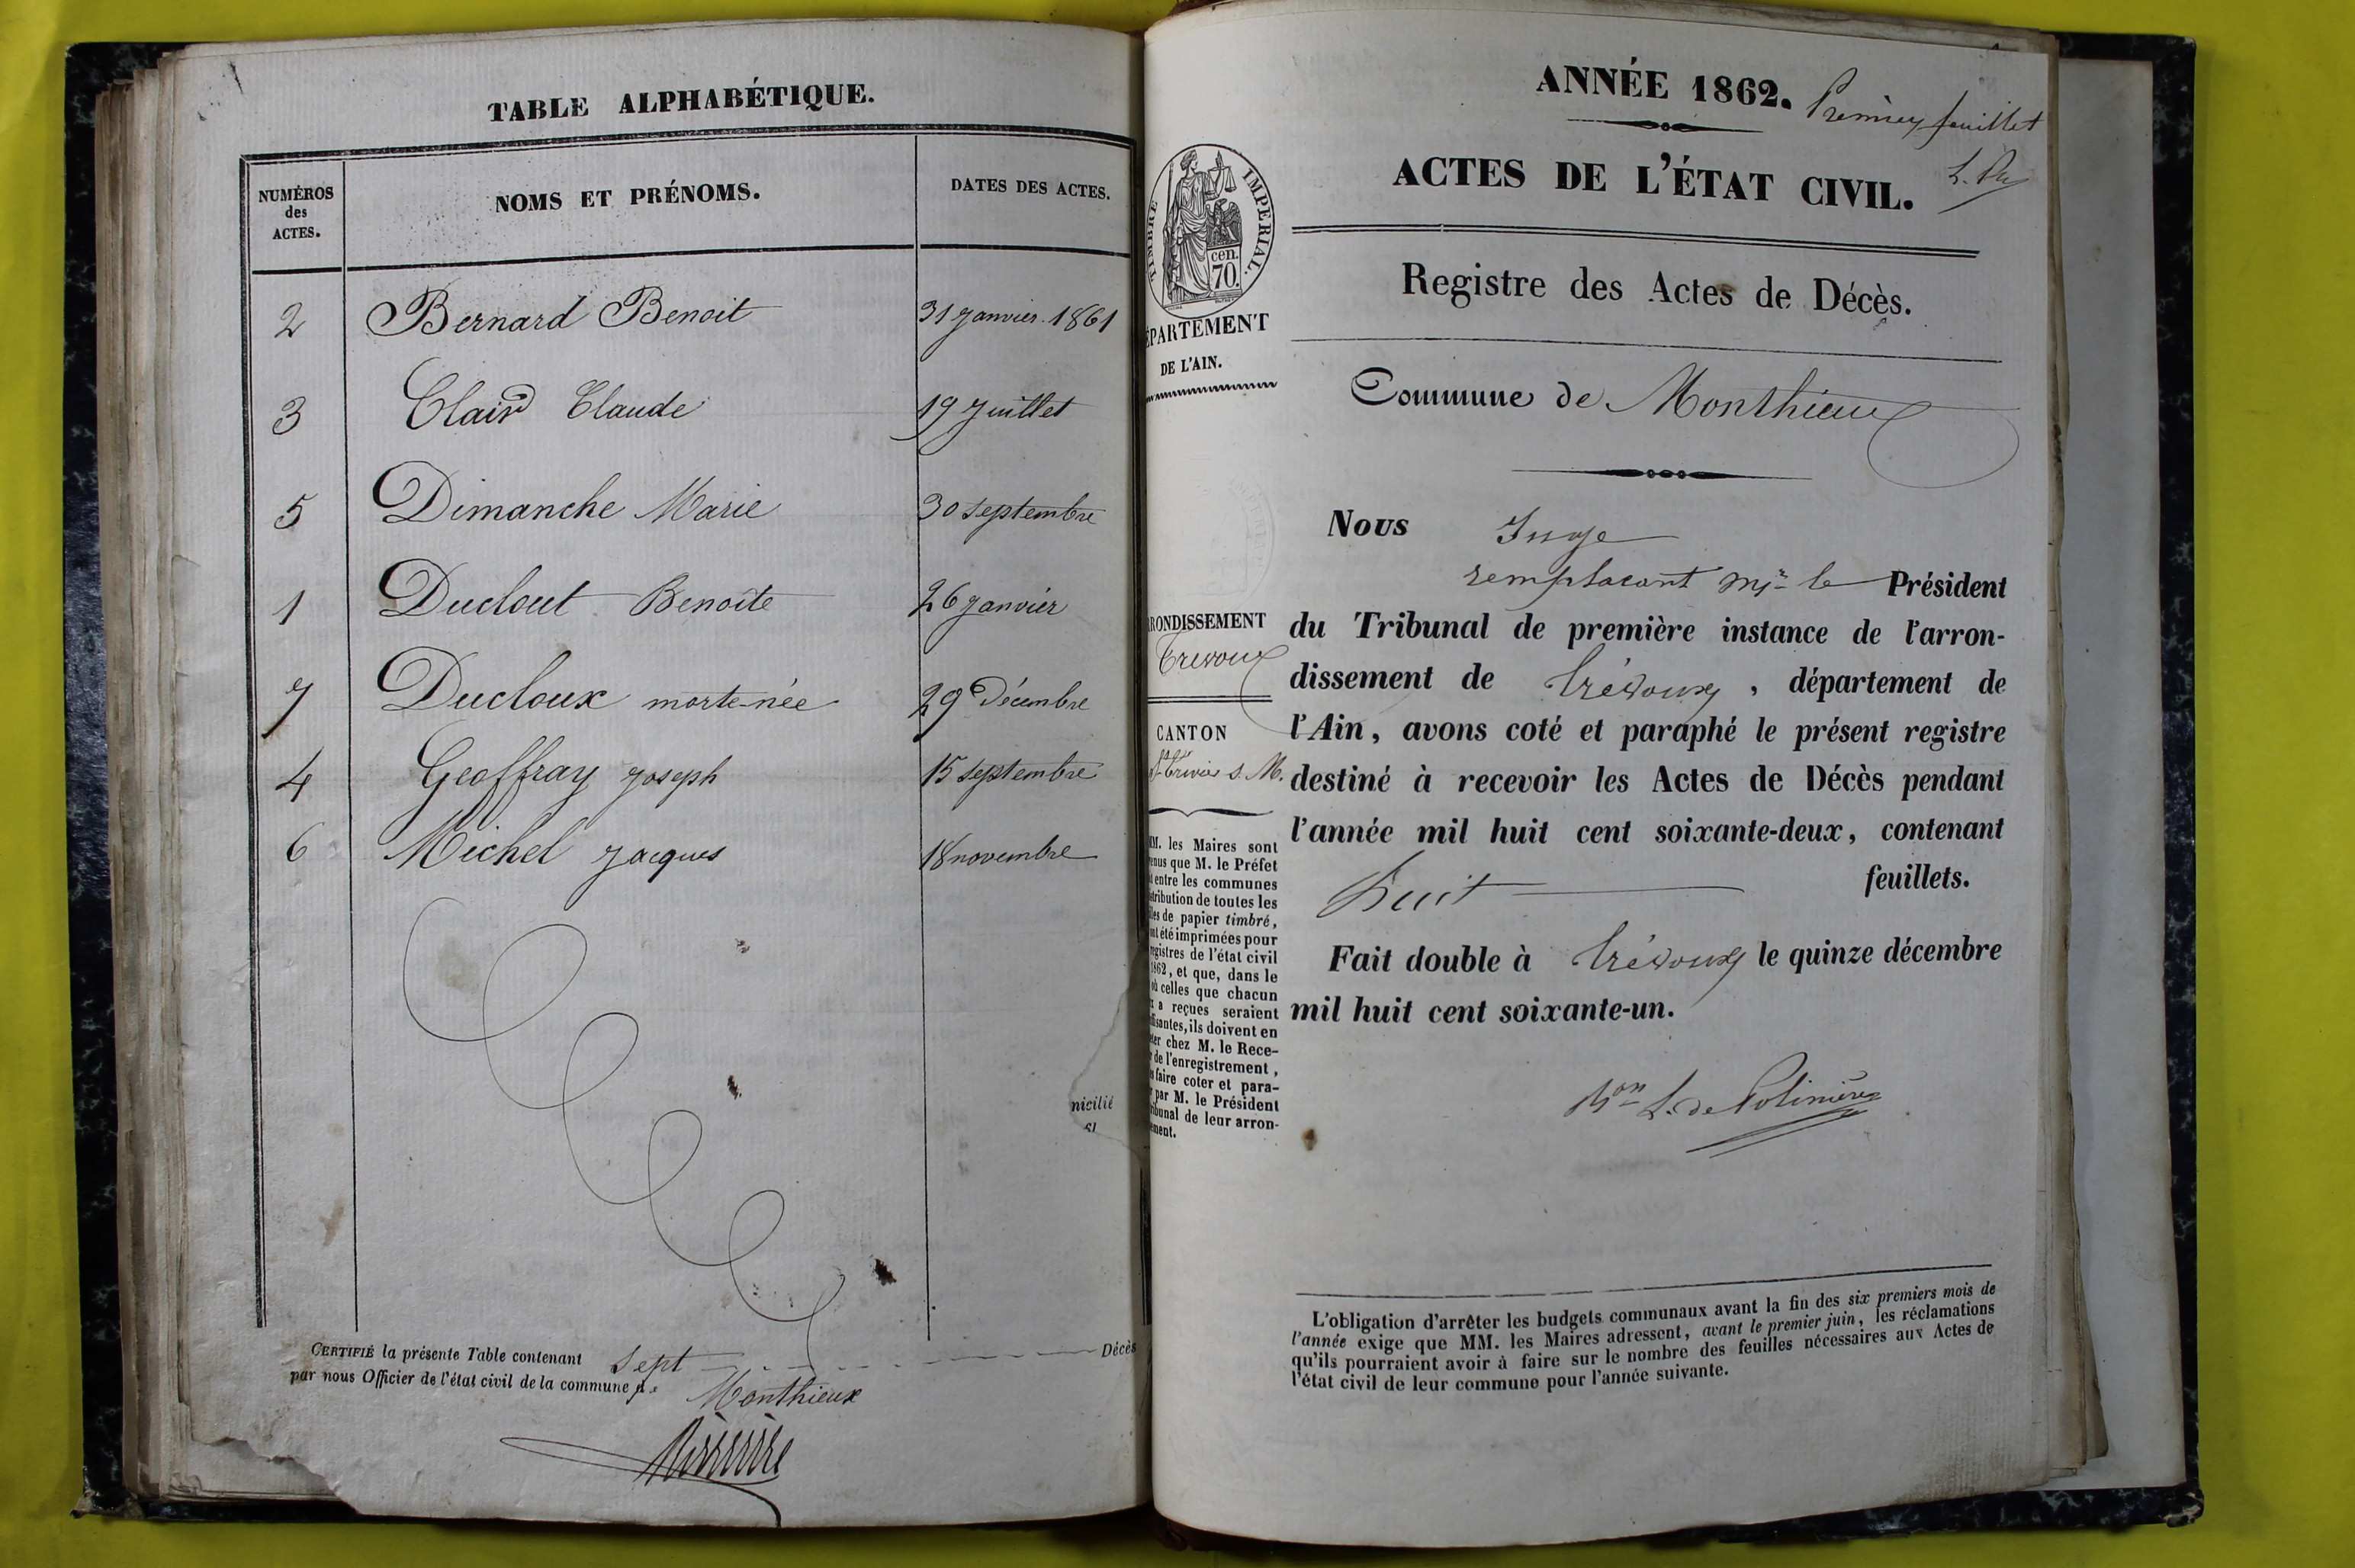 TABLE ALPHABÉTIQUE.
NUMÉROS
des
ACTES.
NOMS ET PRÉNOMS.
DATES DES ACTES.
2 Bernard Benoit 31 Janvier 1861
3 Clair Claude 19 Juillet
5 Dimanche Marie 30 septembre
1 Duclout Benoite 26 Janvier
7 Ducloux morte-née 29 Décembre
4 Geoffray Joseph 15 septembre
6 Michel Jacques 18 novembre
nicilié
CERTIFIÉ la présente Table contenant sept Décès
par nous Officier de l'état civil de la commune de Monthieux
ANNÉE 1862.
Premier feuillet
ACTES DE L'ÉTAT CIVIL.
Registre des Actes de Décès.
Commune de Monthieux
TIMBRE IMPÉRIAL.
cen.
70.
ÉPARTEMENT
DE L'AIN.
RONDISSEMENT
Trévoux
CANTON
St Trivier s. M.
MM. les Maires sont
enus que M. le Préfet
t entre les communes
stribution de toutes les
lles de papier timbré,
nt été imprimées pour
egistres de l'état civil
1862, et que, dans le
où celles que chacun
x a reçues seraient
ffisantes, ils doivent en
eter chez M. le Rece-
r de l'enregistrement,
es faire coter et para-
r par M. le Président
ribunal de leur arron-
ement.
Nous Juge
remplacant Mr le Président
du Tribunal de première instance de l'arron-
dissement de Trévoux, département de
l'Ain, avons coté et paraphé le présent registre
destiné à recevoir les Actes de Décès pendant
l'année mil huit cent soixante-deux, contenant
huit feuillets.
Fait double à Trévoux le quinze décembre
mil huit cent soixante-un.
Bon L. de Polinière
L'obligation d'arrêter les budgets communaux avant la fin des six premiers mois de
l'année exige que MM. les Maires adressent, avant le premier juin, les réclamations
qu'ils pourraient avoir à faire sur le nombre des feuilles nécessaires aux Actes de
l'état civil de leur commune pour l'année suivante.